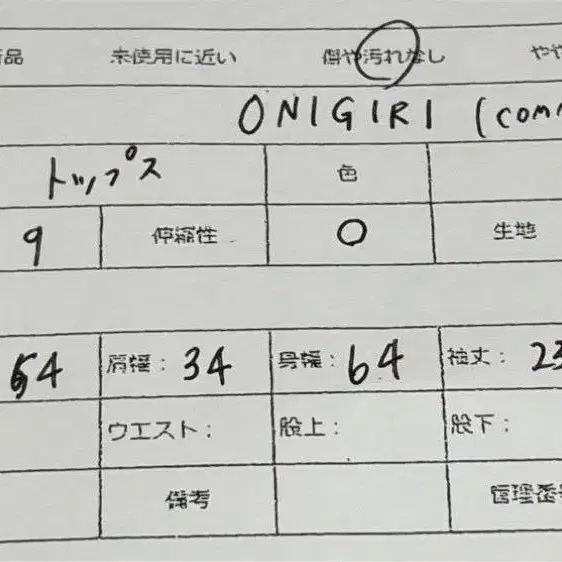 品 未使用に近い 傷や汚れなし やや
ONIGIRI (com
トップス 色
9 伸縮性 ○ 生地
54 肩幅: 34 身幅: 64 袖丈: 23
ウエスト: 股上: 股下:
備考 管理番号